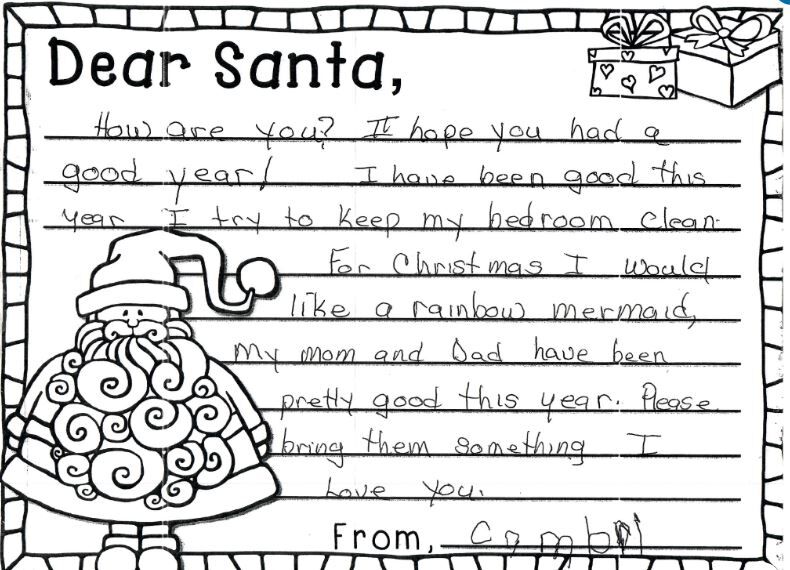 Dear Santa,
How are you? I hope you had a
good year! I have been good this
year I try to keep my bedroom clean.
For Christmas I would
like a rainbow mermaid,
My mom and Dad have been
pretty good this year. Please
bring them something I
Love you.
From,